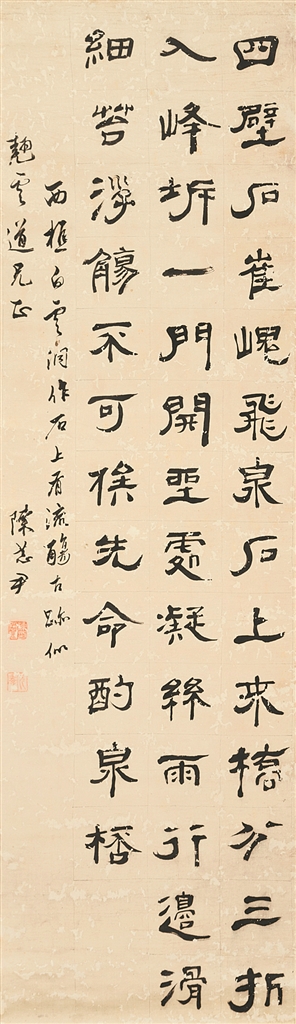 四壁石崔嵬飛泉石上來橋分三折
入峰坼一門開望處凝絲雨行邊滑
細苔浮觴不可俟先命酌泉桮
西樵白雲洞作石上有流觴古跡似
雲道兄正 陳恭尹